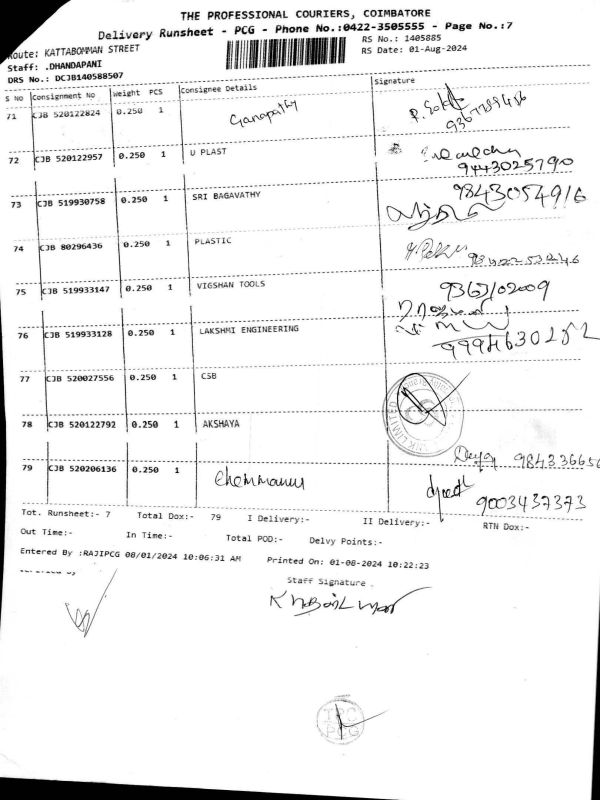 THE PROFESSIONAL COURIERS, COIMBATORE
Delivery Runsheet - PCG - Phone No.:0422-3505555 - Page No.:7
Route: KATTABOMMAN STREET
RS No.: 1405885
Staff: .DHANDAPANI
RS Date: 01-Aug-2024
DRS No.: DCJB140588507
S No Consignment No Weight PCS Consignee Details Signature
71 CJB 520122824 0.250 1 Ganapathy
72 CJB 520122957 0.250 1 U PLAST
9443025790
73 CJB 519930758 0.250 1 SRI BAGAVATHY 9843054916
74 CJB 80296436 0.250 1 PLASTIC
75 CJB 519933147 0.250 1 VIGSHAN TOOLS
76 CJB 519933128 0.250 1 LAKSHMI ENGINEERING
77 CJB 520027556 0.250 1 CSB
78 CJB 520122792 0.250 1 AKSHAYA
79 CJB 520206136 0.250 1 Chemmanur
9003437373
Tot. Runsheet:- 7 Total Dox:- 79 I Delivery:- II Delivery:- RTN Dox:-
Out Time:- In Time:- Total POD:- Delvy Points:-
Entered By :RAJIPCG 08/01/2024 10:06:31 AM Printed On: 01-08-2024 10:22:23
Staff Signature .